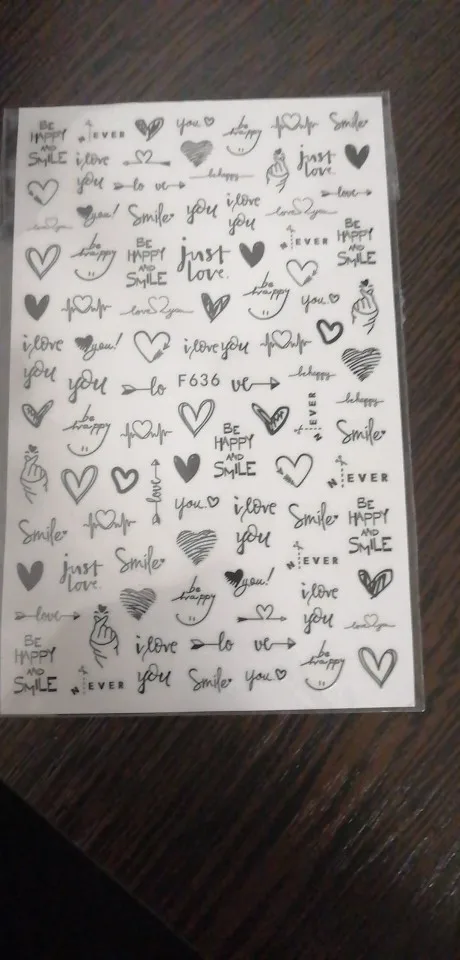 BE HAPPY AND SMILE
N EVER
you
be happy
Smile
i love you
lo ve
be happy
just love.
love
love you
you!
Smile
you
i love you
love you
N EVER
BE HAPPY AND SMILE
be happy
BE HAPPY AND SMILE
just love.
love you
be happy
you
i love you
you!
i love you
you
lo
F636
ve
be happy
be happy
N EVER
be happy
BE HAPPY AND SMILE
Smile
love
N EVER
you
i love you
Smile
BE HAPPY AND SMILE
Smile
just love.
Smile
you!
N EVER
be happy
i love you
love
love you
BE HAPPY AND SMILE
N EVER
i love you
lo ve
Smile
you
be happy